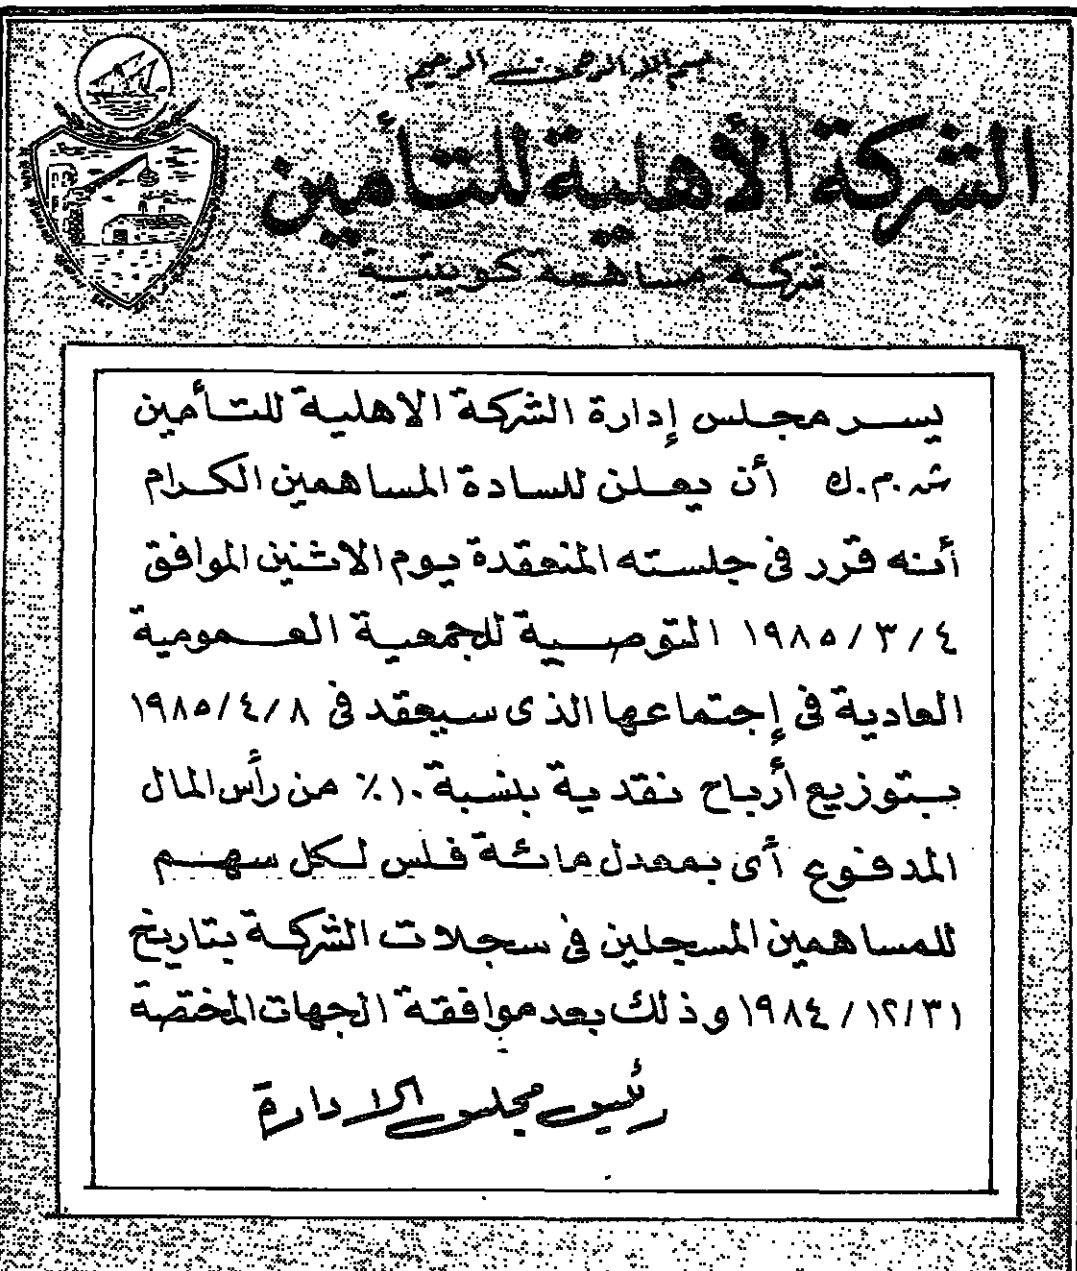 بسم الله الرحمن الرحيم
الشركة الأهلية للتأمين
شركة مساهمة كويتية
يسر مجلس إدارة الشركة الاهلية للتأمين
ش.م.ك أن يعلن للسادة المساهمين الكرام
أنه قرر في جلسته المنعقدة يوم الاثنين الموافق
٤ / ٣ / ١٩٨٥ التوصية للجمعية العمومية
العادية في إجتماعها الذى سيعقد في ٨ /٤/ ١٩٨٥
بتوزيع أرباح نقدية بنسبة ١٠٪ من رأس المال
المدفوع أى بمعدل مائة فلس لكل سهم
للمساهمين المسجلين في سجلات الشركة بتاريخ
٣١/ ١٢/ ١٩٨٤ وذلك بعد موافقة الجهات المختصة
رئيس مجلس الادارة